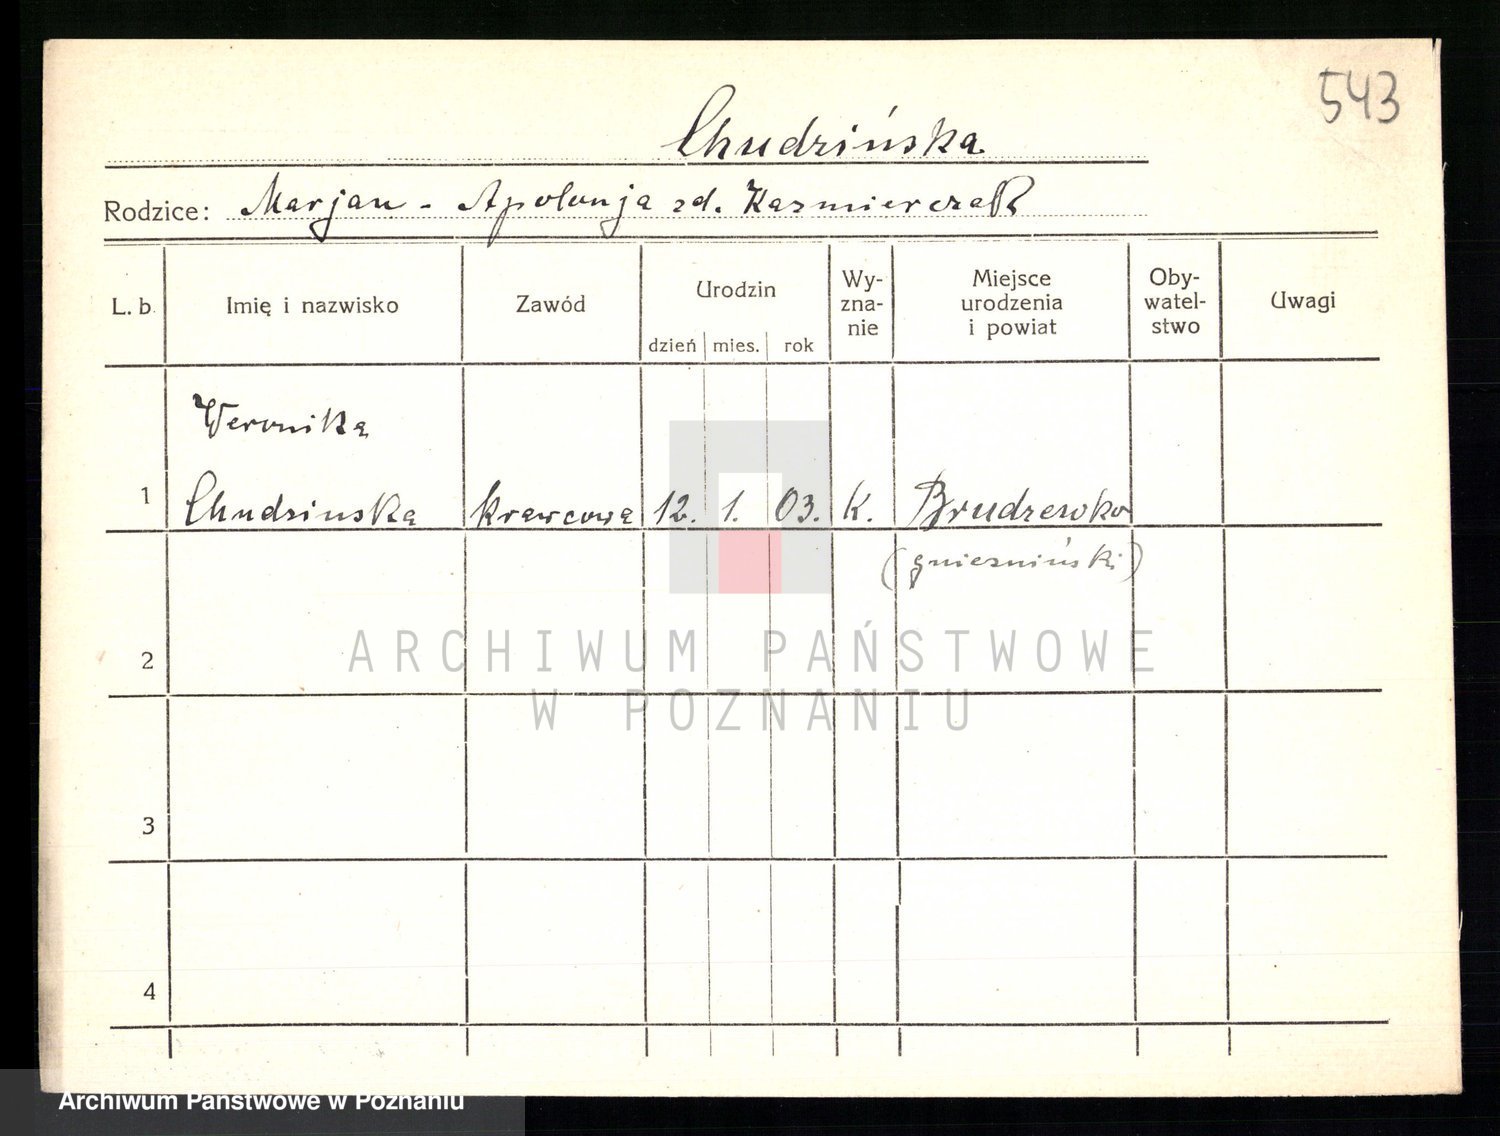 543
Chudzińska
Rodzice: Marjan - Apolonja zd. Kazmierczak
L. b.
Imię i nazwisko
Zawód
Urodzin
dzień mies. rok
Wy-
zna-
nie
Miejsce
urodzenia
i powiat
Oby-
watel-
stwo
Uwagi
Weronika
1 Chudzinska krawcowa 12. 1. 03. K. Brudzewko
(gnieźniński)
2
ARCHIWUM PAŃSTWOWE
W POZNANIU
3
4
Archiwum Państwowe w Poznaniu